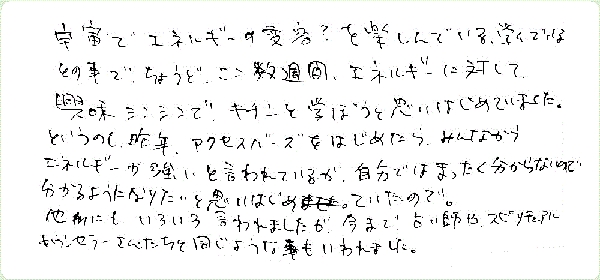 宇宙でエネルギーの変容?を楽しんでいる、学んでいる
との事で、ちょうど、ここ数週間、エネルギーに対して
興味シンシンで、キチンと学ぼうと思いはじめていました。
というのも、昨年、アクセスバーズをはじめたら、みんなから
エネルギーが強いと言われているが、自分ではまったく分からないので
分かるようになりたいと思いはじめていたので。
他にもいろいろ言われましたが、今まで、占い師や、スピリチュアル
カウンセラーさんたちと同じような事もいわれました。